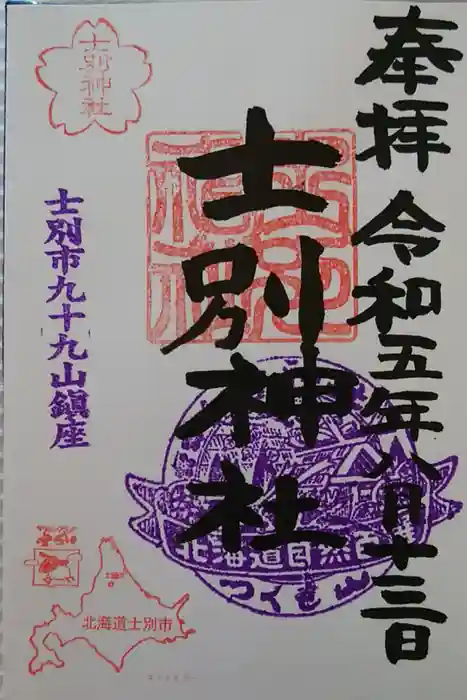 奉拝 令和五年八月十三日
士別神社
士別神社
士別市九十九山鎮座
北海道自然百選
つくも山
北海道士別市